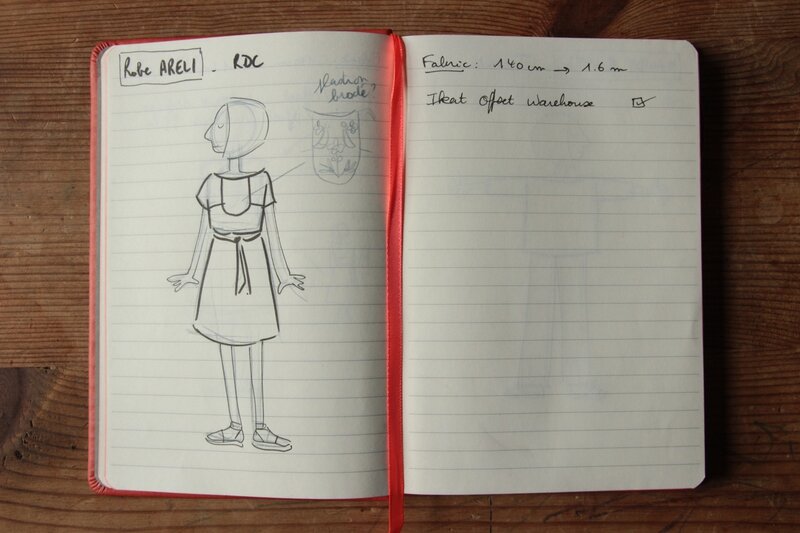 Robe ARELI - RDC
plastron
brodé?
Fabric: 140 cm → 1.6 m
Ikat Offset Warehouse ☑